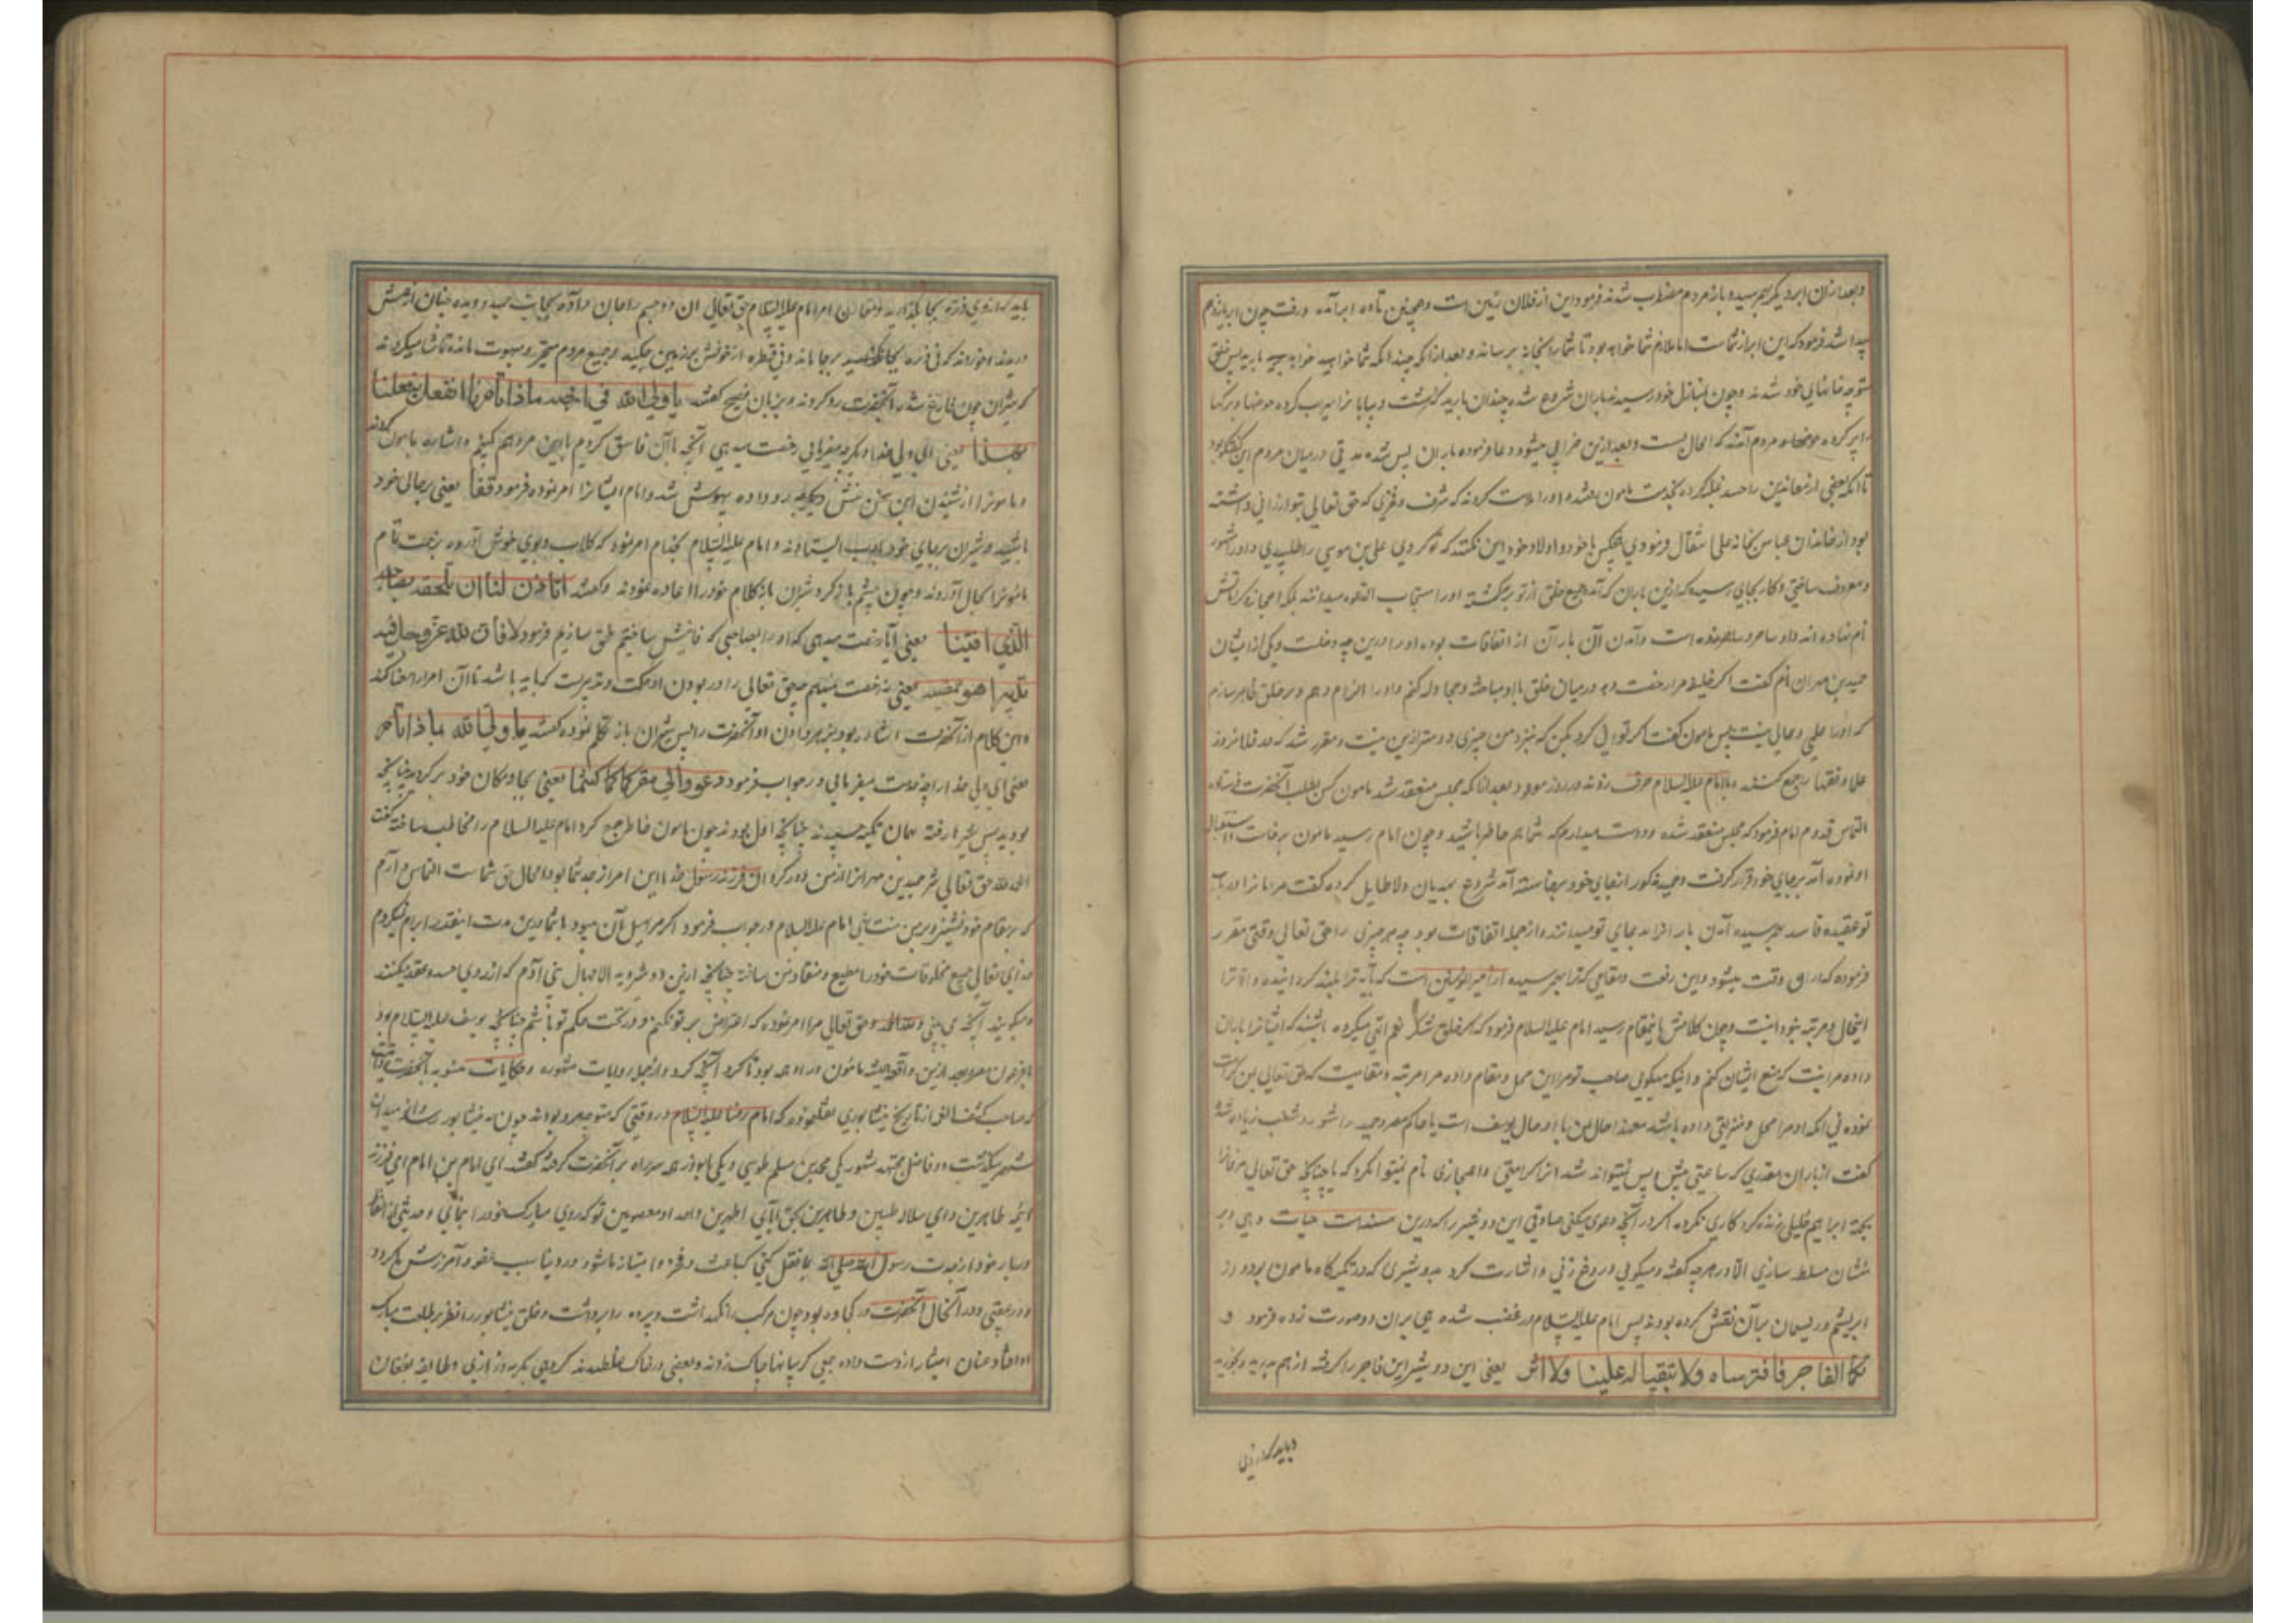 وبعد ازان ابر دیگر بهم رسید و باز مردم مضطرب شدند فرمود این از فلان زمین است و همچنین تا ده ابر آمده و رفت چون ابر یازدهم
پیدا شد فرمود که این ابر از شماست اما ملازم شما خواهد بود تا شما را بخانه برساند و بعد از انکه چندانکه شما خواهید خواهد بارید پس خلق
متوجه خانهای خود شدند و چون بمنازل خود رسیدند باران شروع شده چندان بارید که دشت و بیابانرا سیراب کرده حوضها و برکها
را پر کرده مردم آمدند که الحال بست و بعد ازین خرابی میشود دعا فرموده باران پس شد مدتی درمیان مردم این گفتگو بود
تا انکه بعضی از معاندین را حسد غلبه کرده بخدمت مامون و اورا ملامت کردند که شرف و فخری که حق تعالی بتو ارزانی داشته
بود از خاندان عباس بخانه علی انتقال فرمودی هیچکس با خود و اولاد خود این نکند که تو کردی علی بن موسی را طلبیدی و اورا مشهور
و معروف ساختی و کار بجای رسیده که ازین باران که آمد جمیع خلق از تو برگشته اورا مستجاب الدعوه میدانند بلکه اعجاز و کراماتش
نام نهاده اند و او ساحر و است و آمدن آن باران از اتفاقات بوده اورا درین چه دخلست و یکی از ایشان
حمید بن مهران نام گفت اگر خلیفه مرا رخصت دهد درمیان خلق با او مباحثه و مجادله کنم و اورا الزام دهم و بر خلق ظاهر سازم
که اورا علمی و حالی نیست پس مامون گفت اگر توانی کرد بکن که نزد من چیزی دوستر ازین نیست و مقرر شد که در فلان روز
علما و فقها جمع کنند و با امام علیه السلام حرف زنند و در روز موعود بعد از انکه مجلس منعقد شد مامون کس بطلب آنحضرت فرستاده
التماس قدوم امام فرمود که مجلس منعقد شده و دوست میدارم که شما هم حاضر باشید و چون امام رسید مامون برخاست استقبال
او نموده آمد برجای خود قرار گرفت و حمید مذکور از جای خود برخاسته آمد شروع بهذیان و لاطایل کرده گفت مردمانرا در باب
تو عقیده فاسد بهم رسیده آمدن باران را بدعای تو میدانند و از جمله اتفاقات بود چه هر چیزی را حق تعالی وقتی مقرر
فرموده که دران وقت میشود و این رفعت و مقامی که ترا بهم رسیده از امیر المومنین است که پایه ترا بلند گردانیده و الا ترا
اینحال و مرتبه نبود و نیست و چون کلامش باینمقام رسید امام علیه السلام فرمود که اگر خلق شکر نعم الهی میکرده باشند که ایشانرا باران
داده مرا نیست که منع ایشان کنم و اینکه میگویی صاحب تو مرا این محل و مقام داده مرا مرتبه و مقامیست که حق تعالی بمن کرامت
نموده نی انکه او مرا محل و منزلتی داده باشد معهذا حال من با او حال یوسف است با حاکم مصر و حمید را شور و شغب زیاده شد
گفت از باران مقدری که ساعتی پیش و پس نمیتواند شد انرا کرامتی و اعجازی نام نمیتوان کرد که چنانچه حق تعالی مرغانرا
بجهت ابراهیم خلیل زنده کرد کاری نکرده اگر در آنچه دعوی میکنی صادقی این دو شیر را که درین مسندست حیات دهی و بر
منشان مسلط سازی الا در هرچه گفته و میگویی دروغ زنی و اشارت کرد بدو شیری که در تکیه گاه مامون بود و از
ابریشم و ریسمان بر آن نقش کرده بودند پس امام علیه السلام در غضب شده پی بران دو صورت زده فرمود
دونکما الفاجر فافترساه ولا تبقیا له علینا ولا اثر یعنی این دو شیر این فاجر را گرفته از هم بدرید و بخورید
و باید که از وی
باید که از وی ذره بجا نگذارید و مقارن امر امام علیه السلام حق تعالی ان دو جسم را جان داده بجانب حمید دویده چنان از همش
دریدند و خوردند که نی ذره برجا ماند و نی قطره از خونش بر زمین چکید و جمیع مردم متحیر و مبهوت مانده تماشا میکردند
که شیران چون فارغ شدند بآنحضرت رو کردند و بزبان فصیح گفتند یا ولی الله فی ارضه ماذا تامرنا انفعل بفعلنا
بهذا یعنی ای ولی خدا دیگر چه میفرمایی رخصت میدهی آنچه با آن فاسق کردیم با این مرد هم کنیم و اشاره بمامون کردند
و مامونرا از شنیدن این سخن غشی رو داده بیهوش شد و امام ایشانرا امر نموده فرمود قفا یعنی برجای خود
باشید و شیران برجای خود بادب ایستادند و امام علیه السلام بخدام امر نمود که گلاب و بوی خوش آورده بزحمت تمام
مامونرا بحال آوردند و چون چشم باز کرد شیران باز کلام خود را اعاده نمودند و گفتند اتاذن لنا ان نلحقه بصاحبه
الذی افنیناه یعنی آیا رخصت میدهی که او را بصاحبش که فانیش ساختیم ملحق سازیم فرمود لا فان لله عز وجل فیه
تدبیرا هو ممضیه یعنی نه رخصت نمیدهم چه حق تعالی را در بودن او حکمت و تدبیریست که باید باشد تا آن امر را امضا کند
و این کلام از آنحضرت اشاره بود بزهر دادن او آنحضرت را پس شیران باز تکلم نموده گفتند یا ولی الله بماذا تامرنا
یعنی ای ولی خدا ما را چه خدمت میفرمایی در جواب فرمود عودا الی مقرکما کما کنتما یعنی بجا و مکان خود برگردید چنانچه
بودید پس شیرها رفته بهمان تکیه چسپیدند چنانچه اول بودند چون مامون خاطر جمع کرد امام علیه السلام را مخاطب ساخته گفت
الحمد لله حق تعالی شر حمید بن مهران را از من دور کرد ای فرزند رسول خدا این امر از جد شما بود و الحال حق شماست التماس دارم
که بمقام خود نشینی و بر من منت نهی امام علیه السلام در جواب فرمود اگر مرا میل بآن میبود با شما درین مدت اینقدر ابرام نمیکردم
خدای تعالی جمیع مخلوقات خود را مطیع و منقاد من ساخته چنانچه ازین دو شیر دیدی الا جهال بنی آدم که از روی حسد و حقد میکنند
و میگویند آنچه می بینی و حق تعالی مرا امر نموده که اعتراض بر تو نکنم و در تحت حکم تو باشم چنانچه یوسف علیه السلام بود
با فرعون مصر و بعد ازین واقعه همیشه مامون در بود تا کرد آنچه کرد و از جمله روایات مشهوره و حکایات منسوبه بآنحضرت آنست
که صاحب کشف الغمه از تاریخ نیشابوری نقل نموده که امام رضا علیه السلام در وقتی که متوجه مرو بودند چون به نیشابور رسید و از میدان
شهر میگذشت دو فاضل مجتهد مشهور یکی محمد بن مسلم طوسی و یکی ابو زرعه سر راه بر آنحضرت گرفته گفتند ای امام بن امام ای فرزند
ایمه طاهرین و ای سلاله طیبین و طاهرین بحق آبای اطهرین و اجداد معصومین تو که روی مبارک خود را بنمای و حدیثی از الفاظ
دربار خود از جدت رسول الله صلی الله بما نقل کنی که باعث مفخر و امتیاز ما شود و در دنیا سبب عفو و آمرزش ما گردد
در عقبی و در آنحال آنحضرت در کجاوه بود چون مرکب را نگهداشت و پرده را برداشت و خلق نیشابور را نظر بر طلعت مبارک
او افتاد عنان اختیار از دست داده جمعی گریبانها چاک زدند و بعضی در خاک غلطیدند گروهی بگریه و زاری و طایفه بفغان